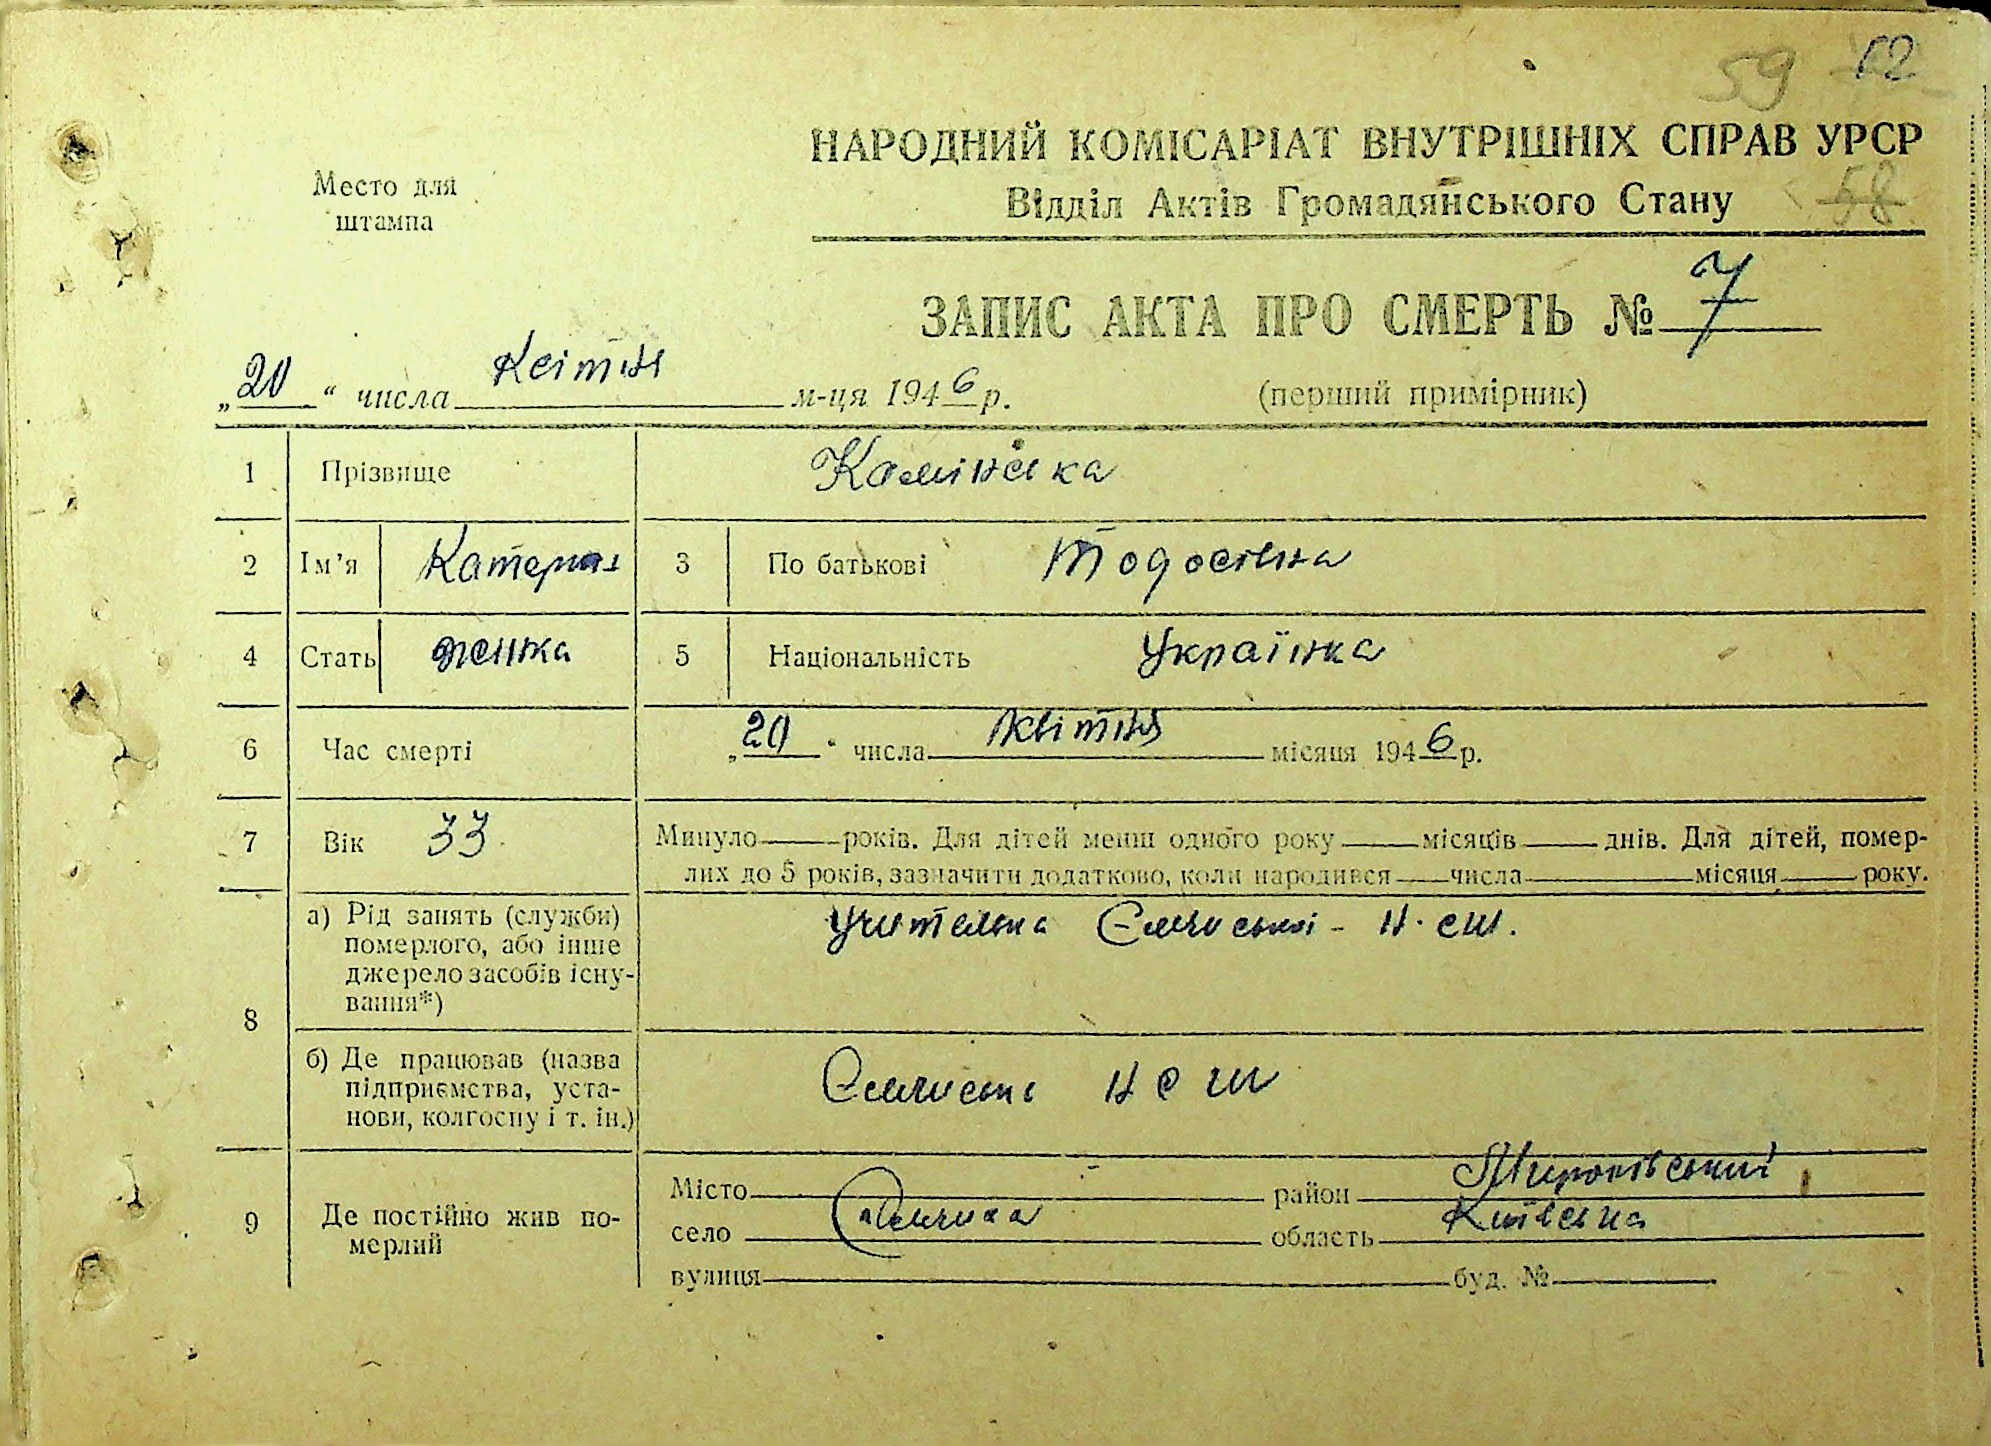 59 52
НАРОДНИЙ КОМІСАРІАТ ВНУТРІШНІХ СПРАВ УРСР
Відділ Актів Громадянського Стану 58
Место для
штампа
ЗАПИС АКТА ПРО СМЕРТЬ № 7
„20“ числа Квітня м-ця 1946 р. (перший примірник)
1 Прізвище Камінська
2 Ім'я Катерина 3 По батькові Тодосівна
4 Стать жінка 5 Національність Українка
6 Час смерті „20“ числа квітня місяця 1946 р.
7 Вік 33 Минуло — років. Для дітей менш одного року — місяців — днів. Для дітей, помер-
лих до 5 років, зазначити додатково, коли народився — числа — місяця — року.
8 а) Рід занять (служби)
померлого, або інше
джерело засобів існу-
вання*)
Учителька н.сш.
б) Де працював (назва
підприємства, уста-
нови, колгоспу і т. ін.)
н с ш
9 Де постійно жив по-
мерлий
Місто район Миронівський
село область Київська
вулиця буд. №